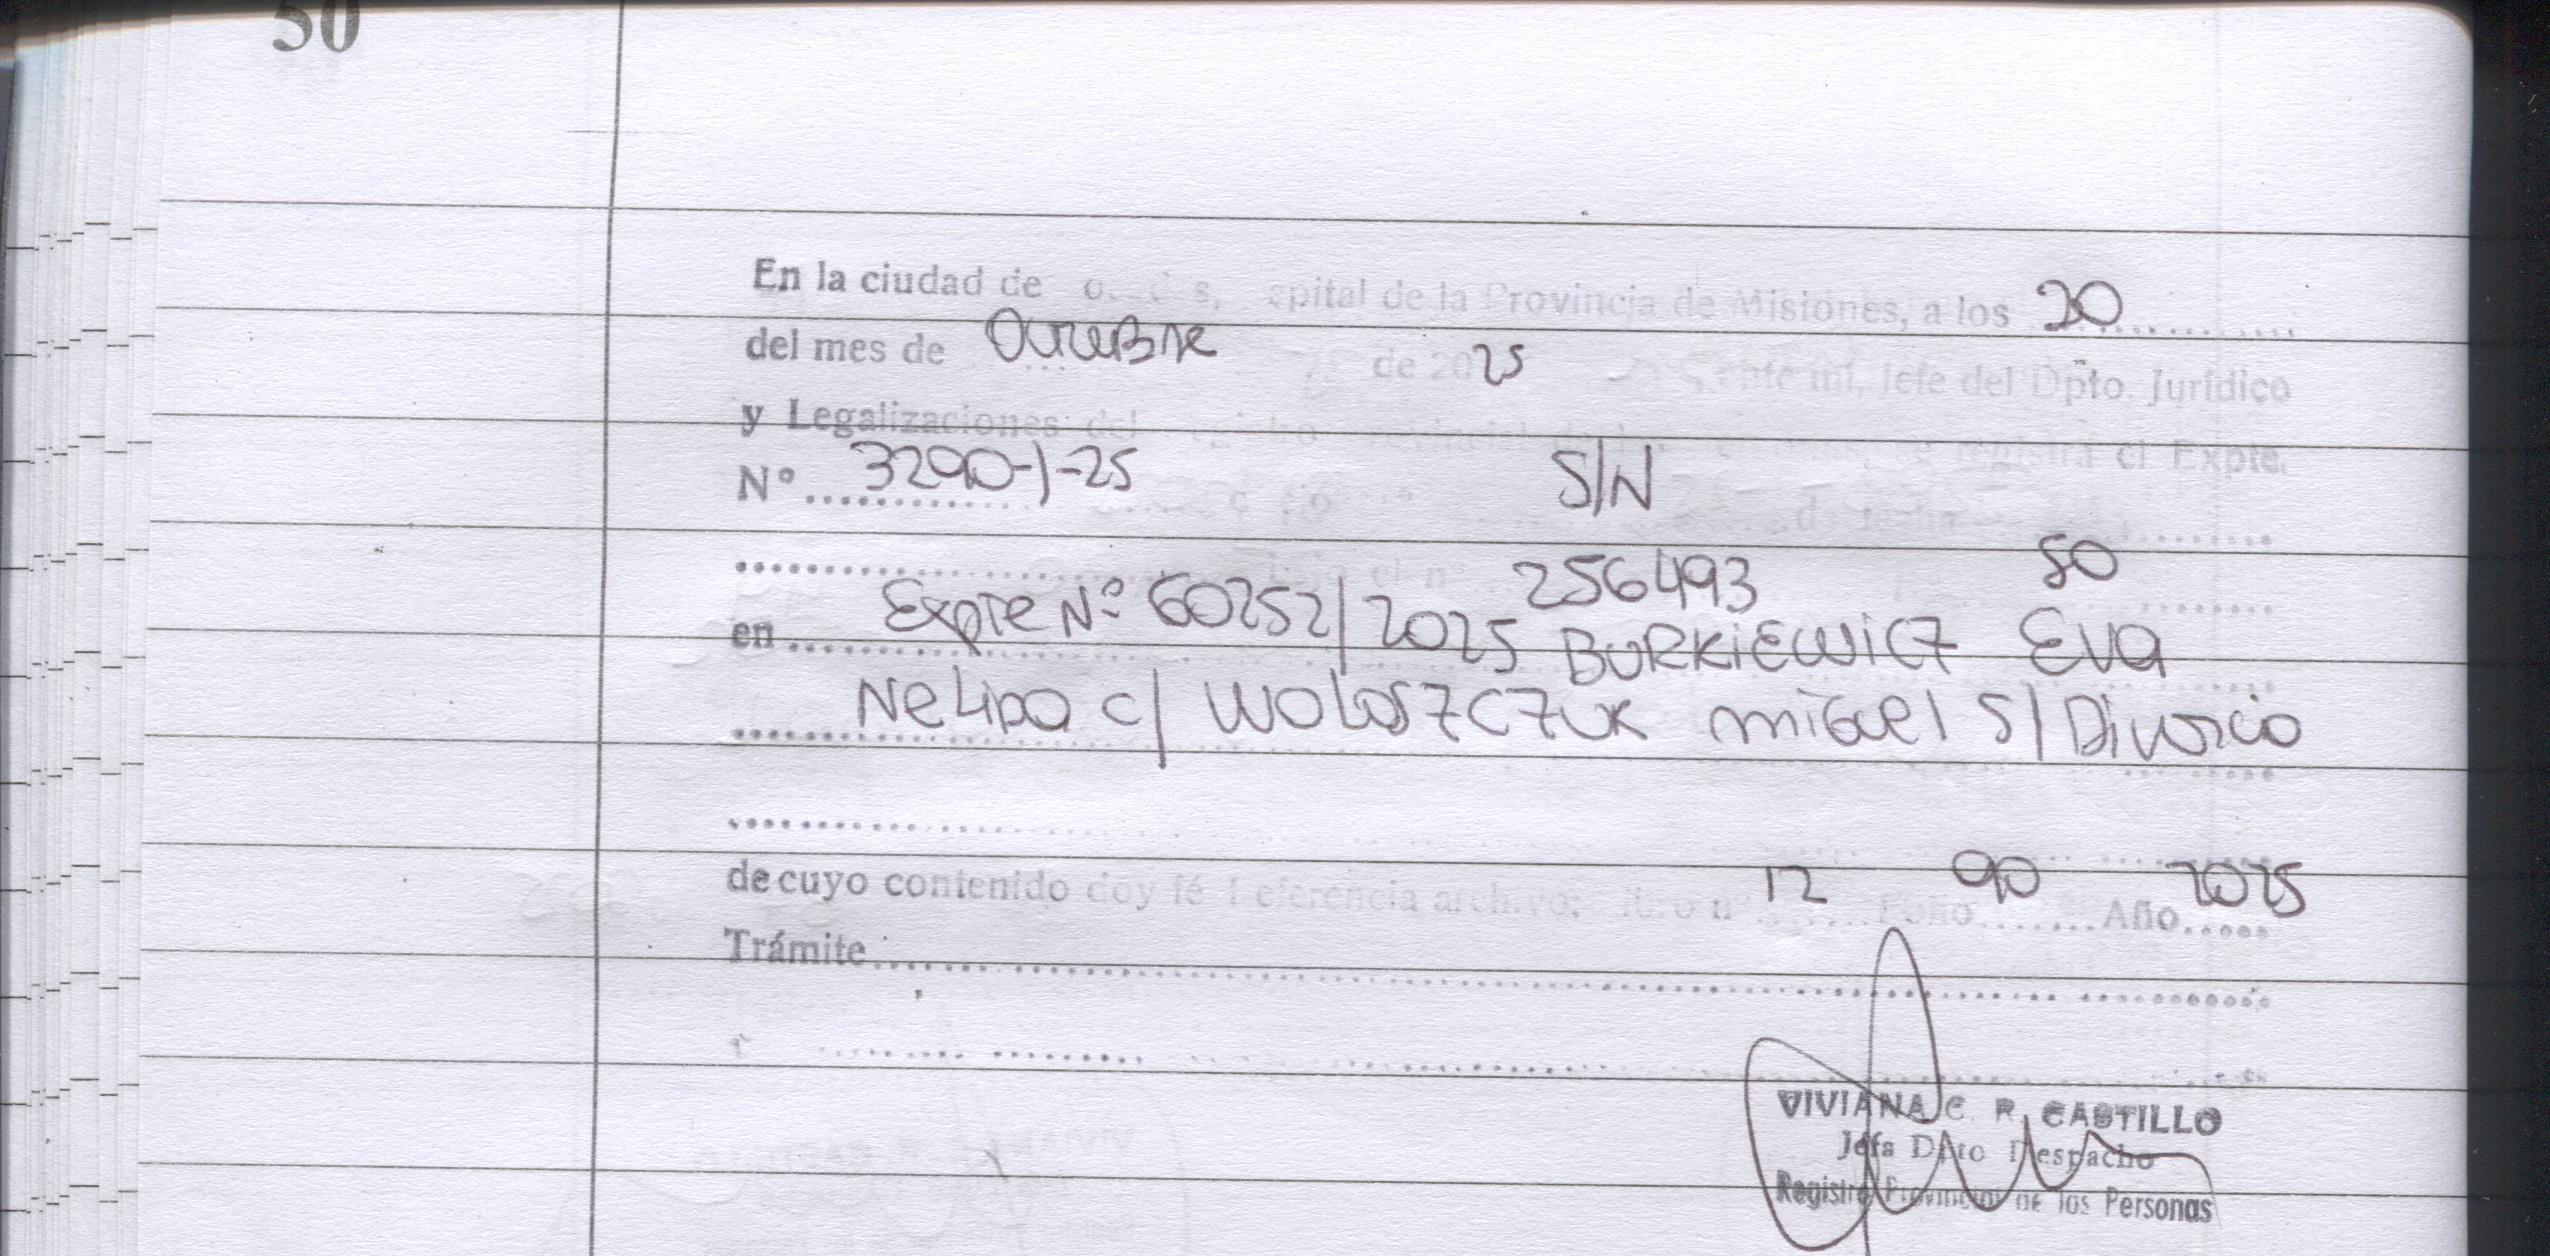 50
En la ciudad de s, apital de la Provincia de Misiones, a los 20
del mes de Octubre de 2025 ante mi, Jefe del Dpto. Jurídico
y Legalizaciones del se registra el Expte.
Nº 3290-1-25 S/N
256493 50
en Expte Nº 60252/2025 BURKIEWICZ EVA
NELIDA c/ WOLOSZCZUK miguel S/ Divorcio
de cuyo contenido doy fé Referencia archivo; libro nº 12 Folio 90 Año 2025
Trámite
VIVIANA C. R. CASTILLO
Jefa Dpto Despacho
Registro Provincial de las Personas